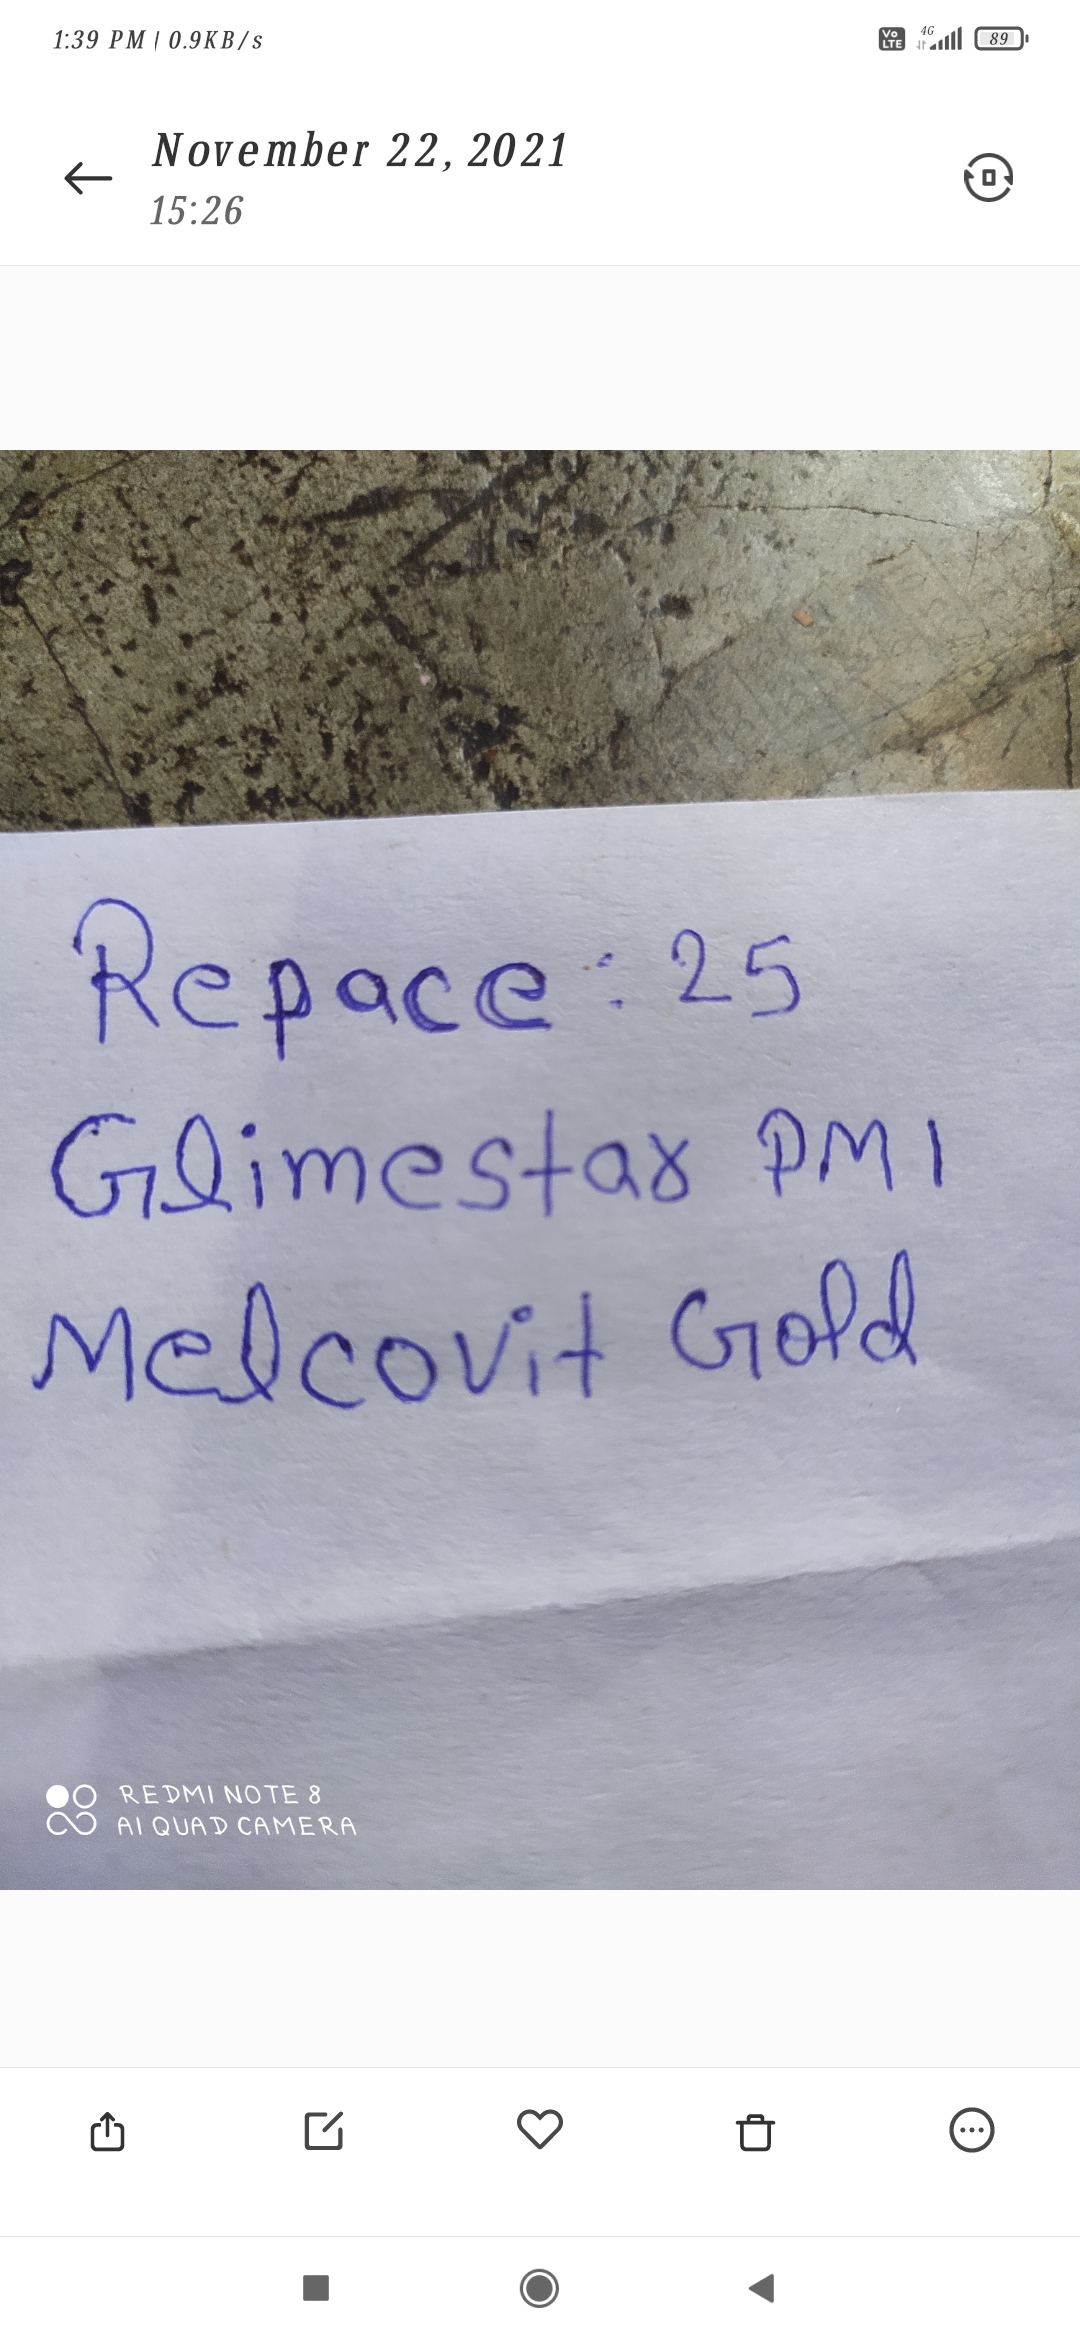 1:39 PM | 0.9KB/s
Vo LTE 4G 89
November 22, 2021
15:26
Repace : 25
Glimestar PM 1
Melcovit Gold
REDMI NOTE 8
AI QUAD CAMERA